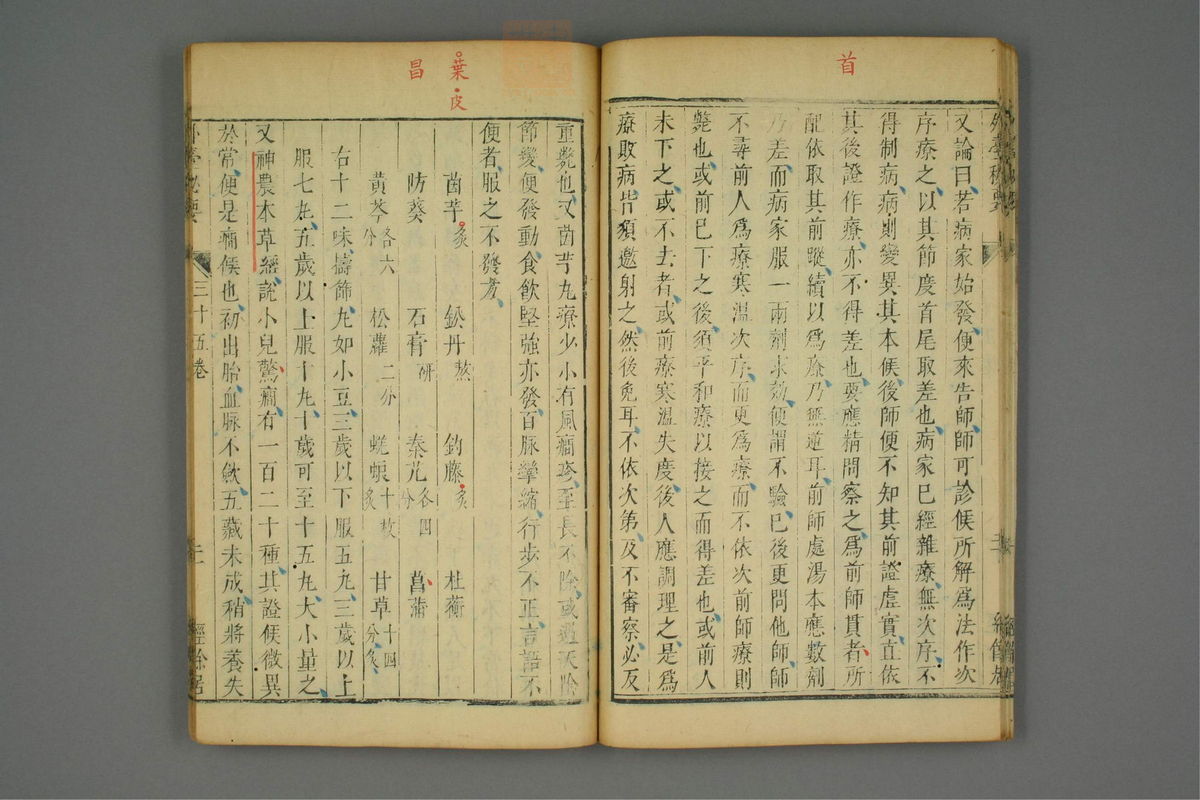 首
又論曰若病家始發便來告師師可診候所解爲法作次
序療之以其節度首尾取差也病家已經雜療無次序不
得制病病則變異其本候後師便不知其前證虛實直依
其後證作療亦不得差也要應精問察之爲前師貫者所
配依取其前蹤續以爲療乃無逆耳前師處湯本應數劑
乃差而病家服一兩劑未効便謂不驗已後更問他師師
不尋前人爲療寒溫次序而更爲療而不依次前師療則
斃也或前已下之後須平和療以接之而得差也或前人
未下之或不去者或前療寒溫失度後人應調理之是爲
療敗病皆須邀射之然後免耳不依次第及不審察必及
葉 皮
昌
重斃也又茵芋丸療少小有風癇疹至長不除或遇天陰
節變便發動食飲堅強亦發百脉攣縮行步不正言語不
便者服之不發方
茵芋炙 鈆丹熬 鈎藤炙 杜蘅
防葵 石膏研 秦艽各四分 菖蒲
黃芩各六分 松蘿二分 蜣蜋十枚炙 甘草十四分炙
右十二味擣篩丸如小豆三歲以下服五丸三歲以上
服七丸五歲以上服十丸十歲可至十五丸大小量之
又神農本草經說小兒驚癇有一百二十種其證候微異
於常便是癇候也初出胎血脉不歛五藏未成稍將養失
三十五卷
經餘居